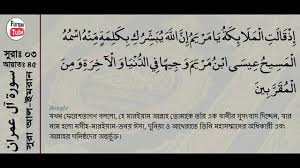 Furqan
Tube
সূরাঃ ০৩
আয়াতঃ ৪৫
سورة آل عمران
সূরা আল-ইমরান
إِذْ قَالَتِ الْمَلَائِكَةُ يَا مَرْيَمُ إِنَّ اللَّهَ يُبَشِّرُكِ بِكَلِمَةٍ مِنْهُ اسْمُهُ
الْمَسِيحُ عِيسَى ابْنُ مَرْيَمَ وَجِيهًا فِي الدُّنْيَا وَالْآخِرَةِ وَمِنَ
الْمُقَرَّبِينَ
Bangla
যখন ফেরেশতাগণ বললো, হে মারইয়াম আল্লাহ তোমাকে তাঁর এক বানীর সুসংবাদ দিচ্ছেন, যার
নাম হলো মসীহ-মারইয়াম-তনয় ঈসা, দুনিয়া ও আখেরাতে তিনি মহাসম্মানের অধিকারী এবং
আল্লাহর ঘনিষ্ঠদের অন্তর্ভূক্ত।